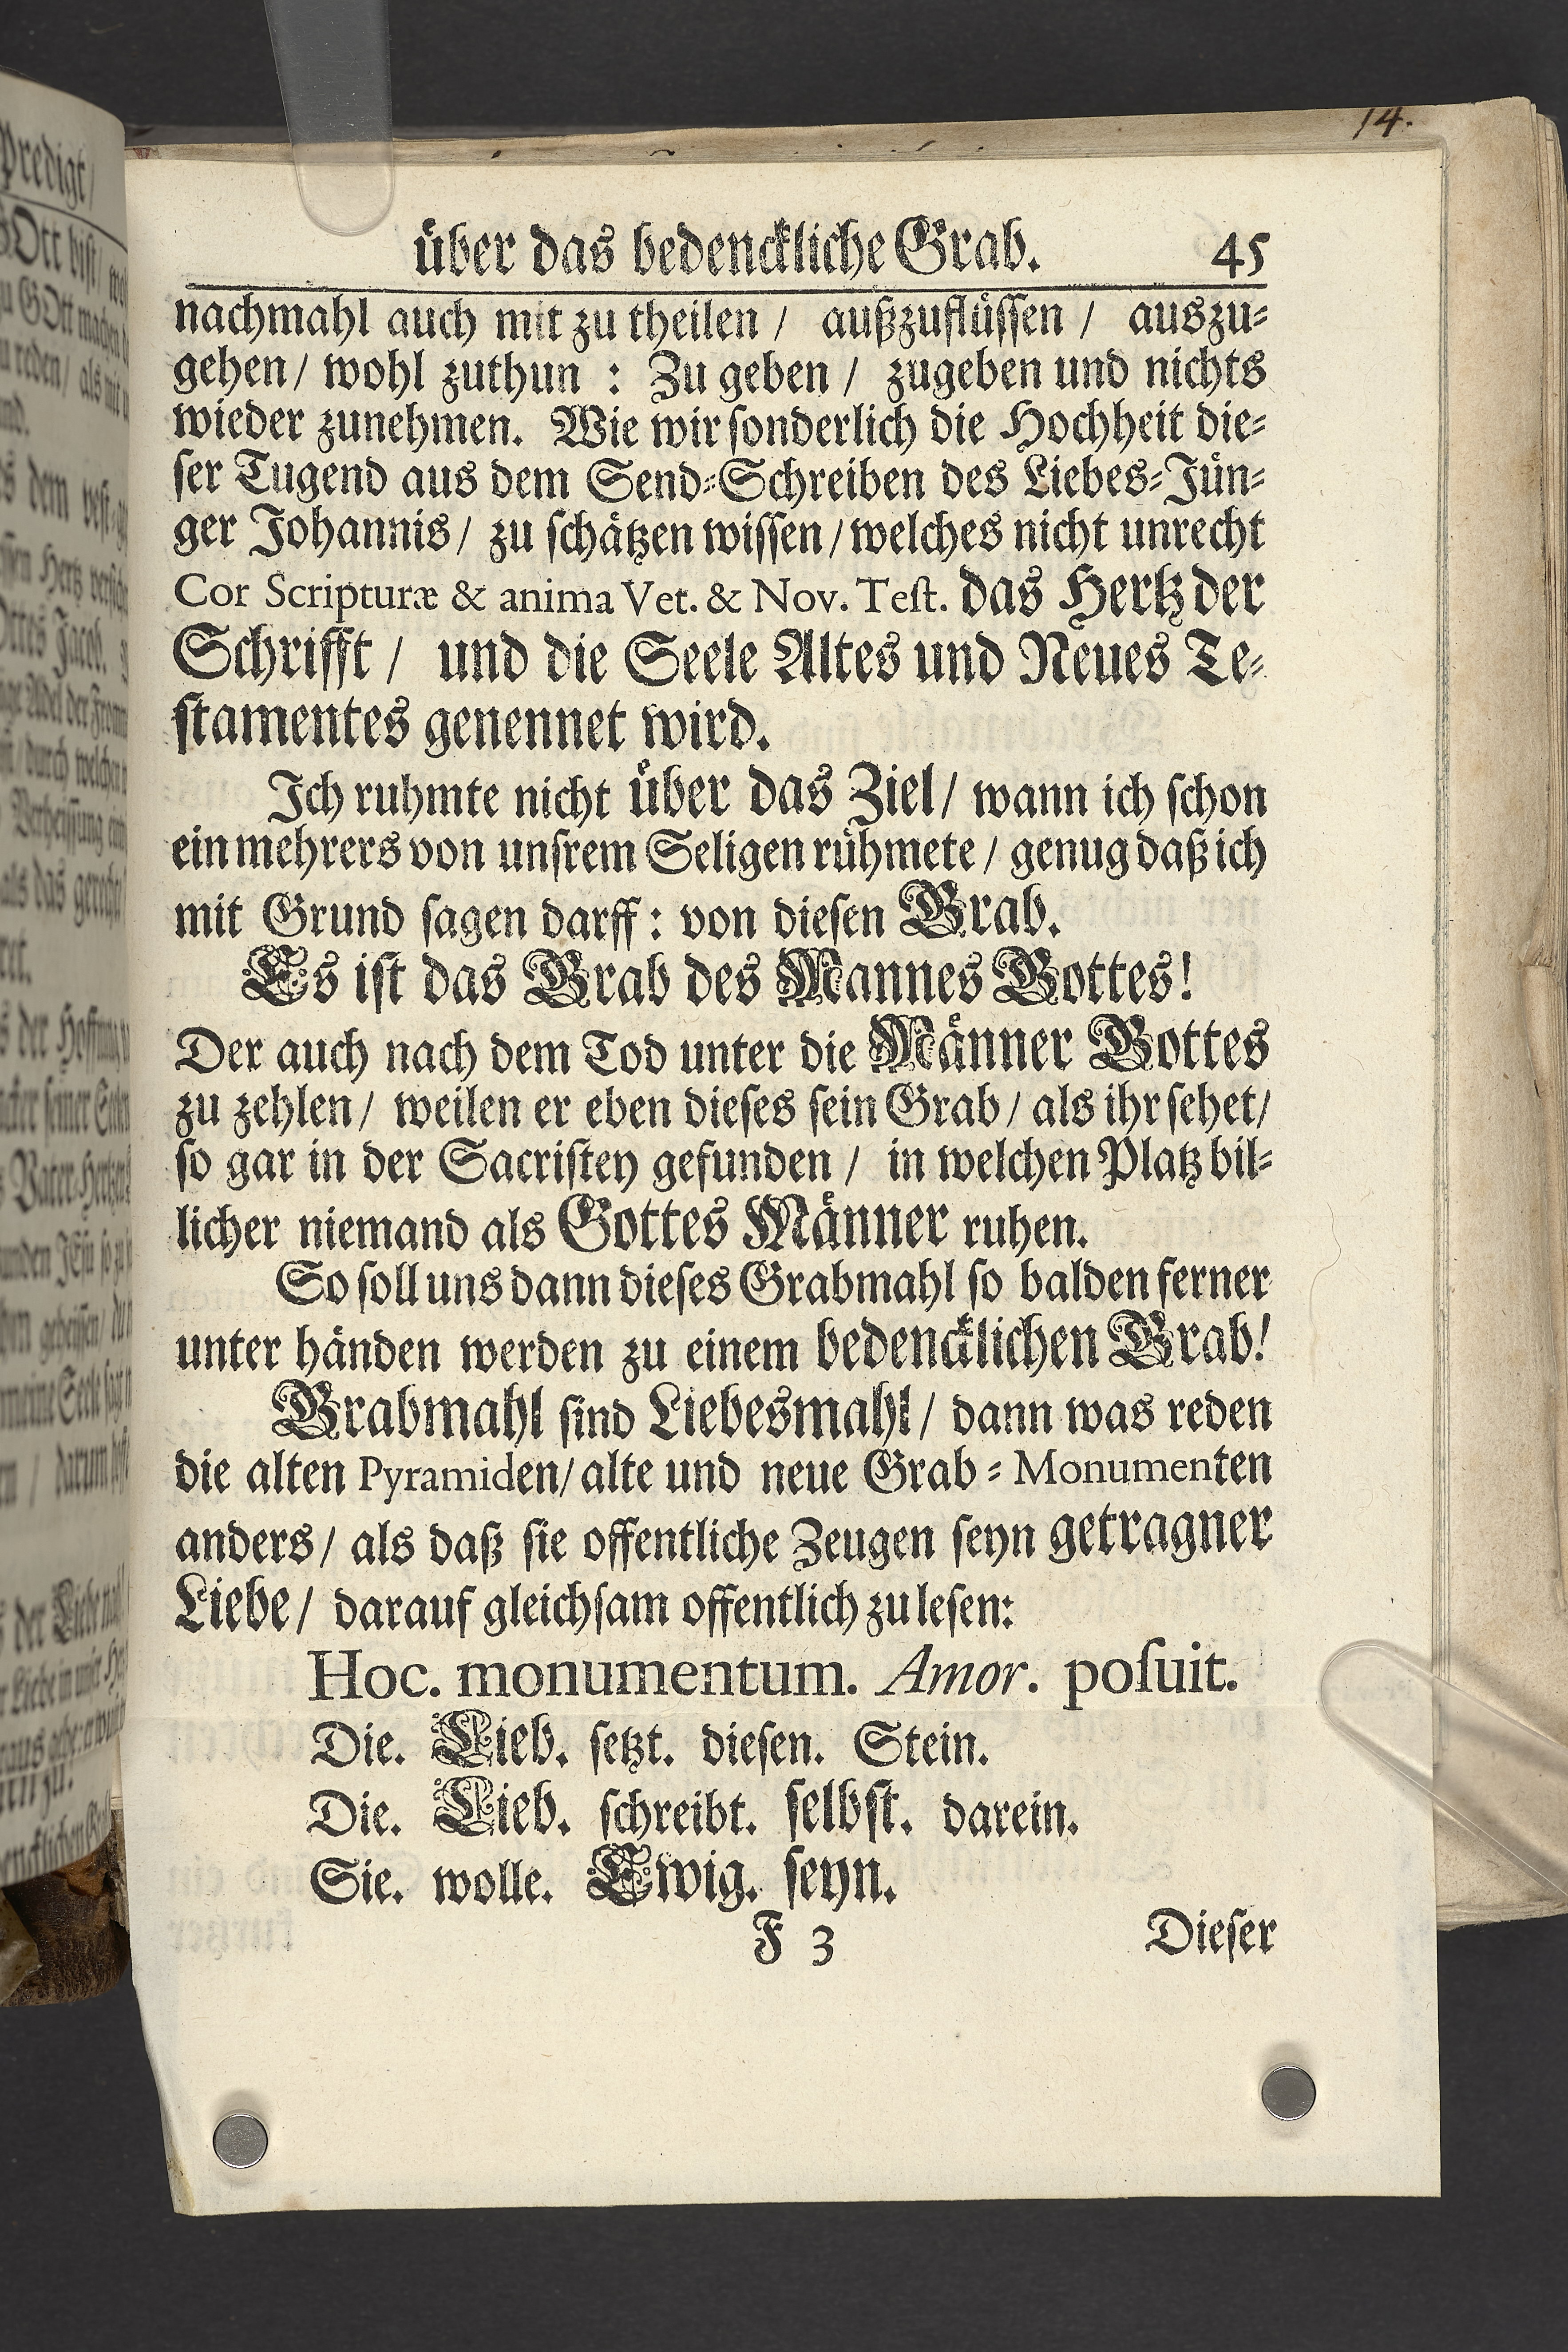 14.
über das bedenckliche Grab. 45
nachmahl auch mit zu theilen / außzuflüssen / auszu-
gehen / wohl zuthun : Zu geben / zugeben und nichts
wieder zunehmen. Wie wir sonderlich die Hochheit die-
ser Tugend aus dem Send-Schreiben des Liebes-Jün-
ger Johannis / zu schätzen wissen / welches nicht unrecht
Cor Scripturæ & anima Vet. & Nov. Test. das Hertz der
Schrifft / und die Seele Altes und Neues Te-
stamentes genennet wird.
Ich ruhmte nicht über das Ziel / wann ich schon
ein mehrers von unsrem Seligen rühmete / genug daß ich
mit Grund sagen darff : von diesen Grab.
Es ist das Grab des Mannes Gottes!
Der auch nach dem Tod unter die Männer Gottes
zu zehlen / weilen er eben dieses sein Grab / als ihr sehet /
so gar in der Sacristey gefunden / in welchen Platz bil-
licher niemand als Gottes Männer ruhen.
So soll uns dann dieses Grabmahl so balden ferner
unter händen werden zu einem bedencklichen Grab!
Grabmahl sind Liebesmahl / dann was reden
die alten Pyramiden / alte und neue Grab-Monumenten
anders / als daß sie offentliche Zeugen seyn getragner
Liebe / darauf gleichsam offentlich zu lesen:
Hoc. monumentum. Amor. posuit.
Die. Lieb. setzt. diesen. Stein.
Die. Lieb. schreibt. selbst. darein.
Sie. wolle. Ewig. seyn.
F 3 Dieser